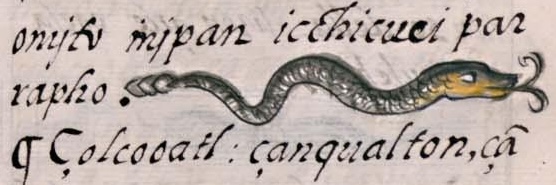 onjtv injpan icchicuei par
rapho.
¶ Çolcooatl: çanqualton, çã